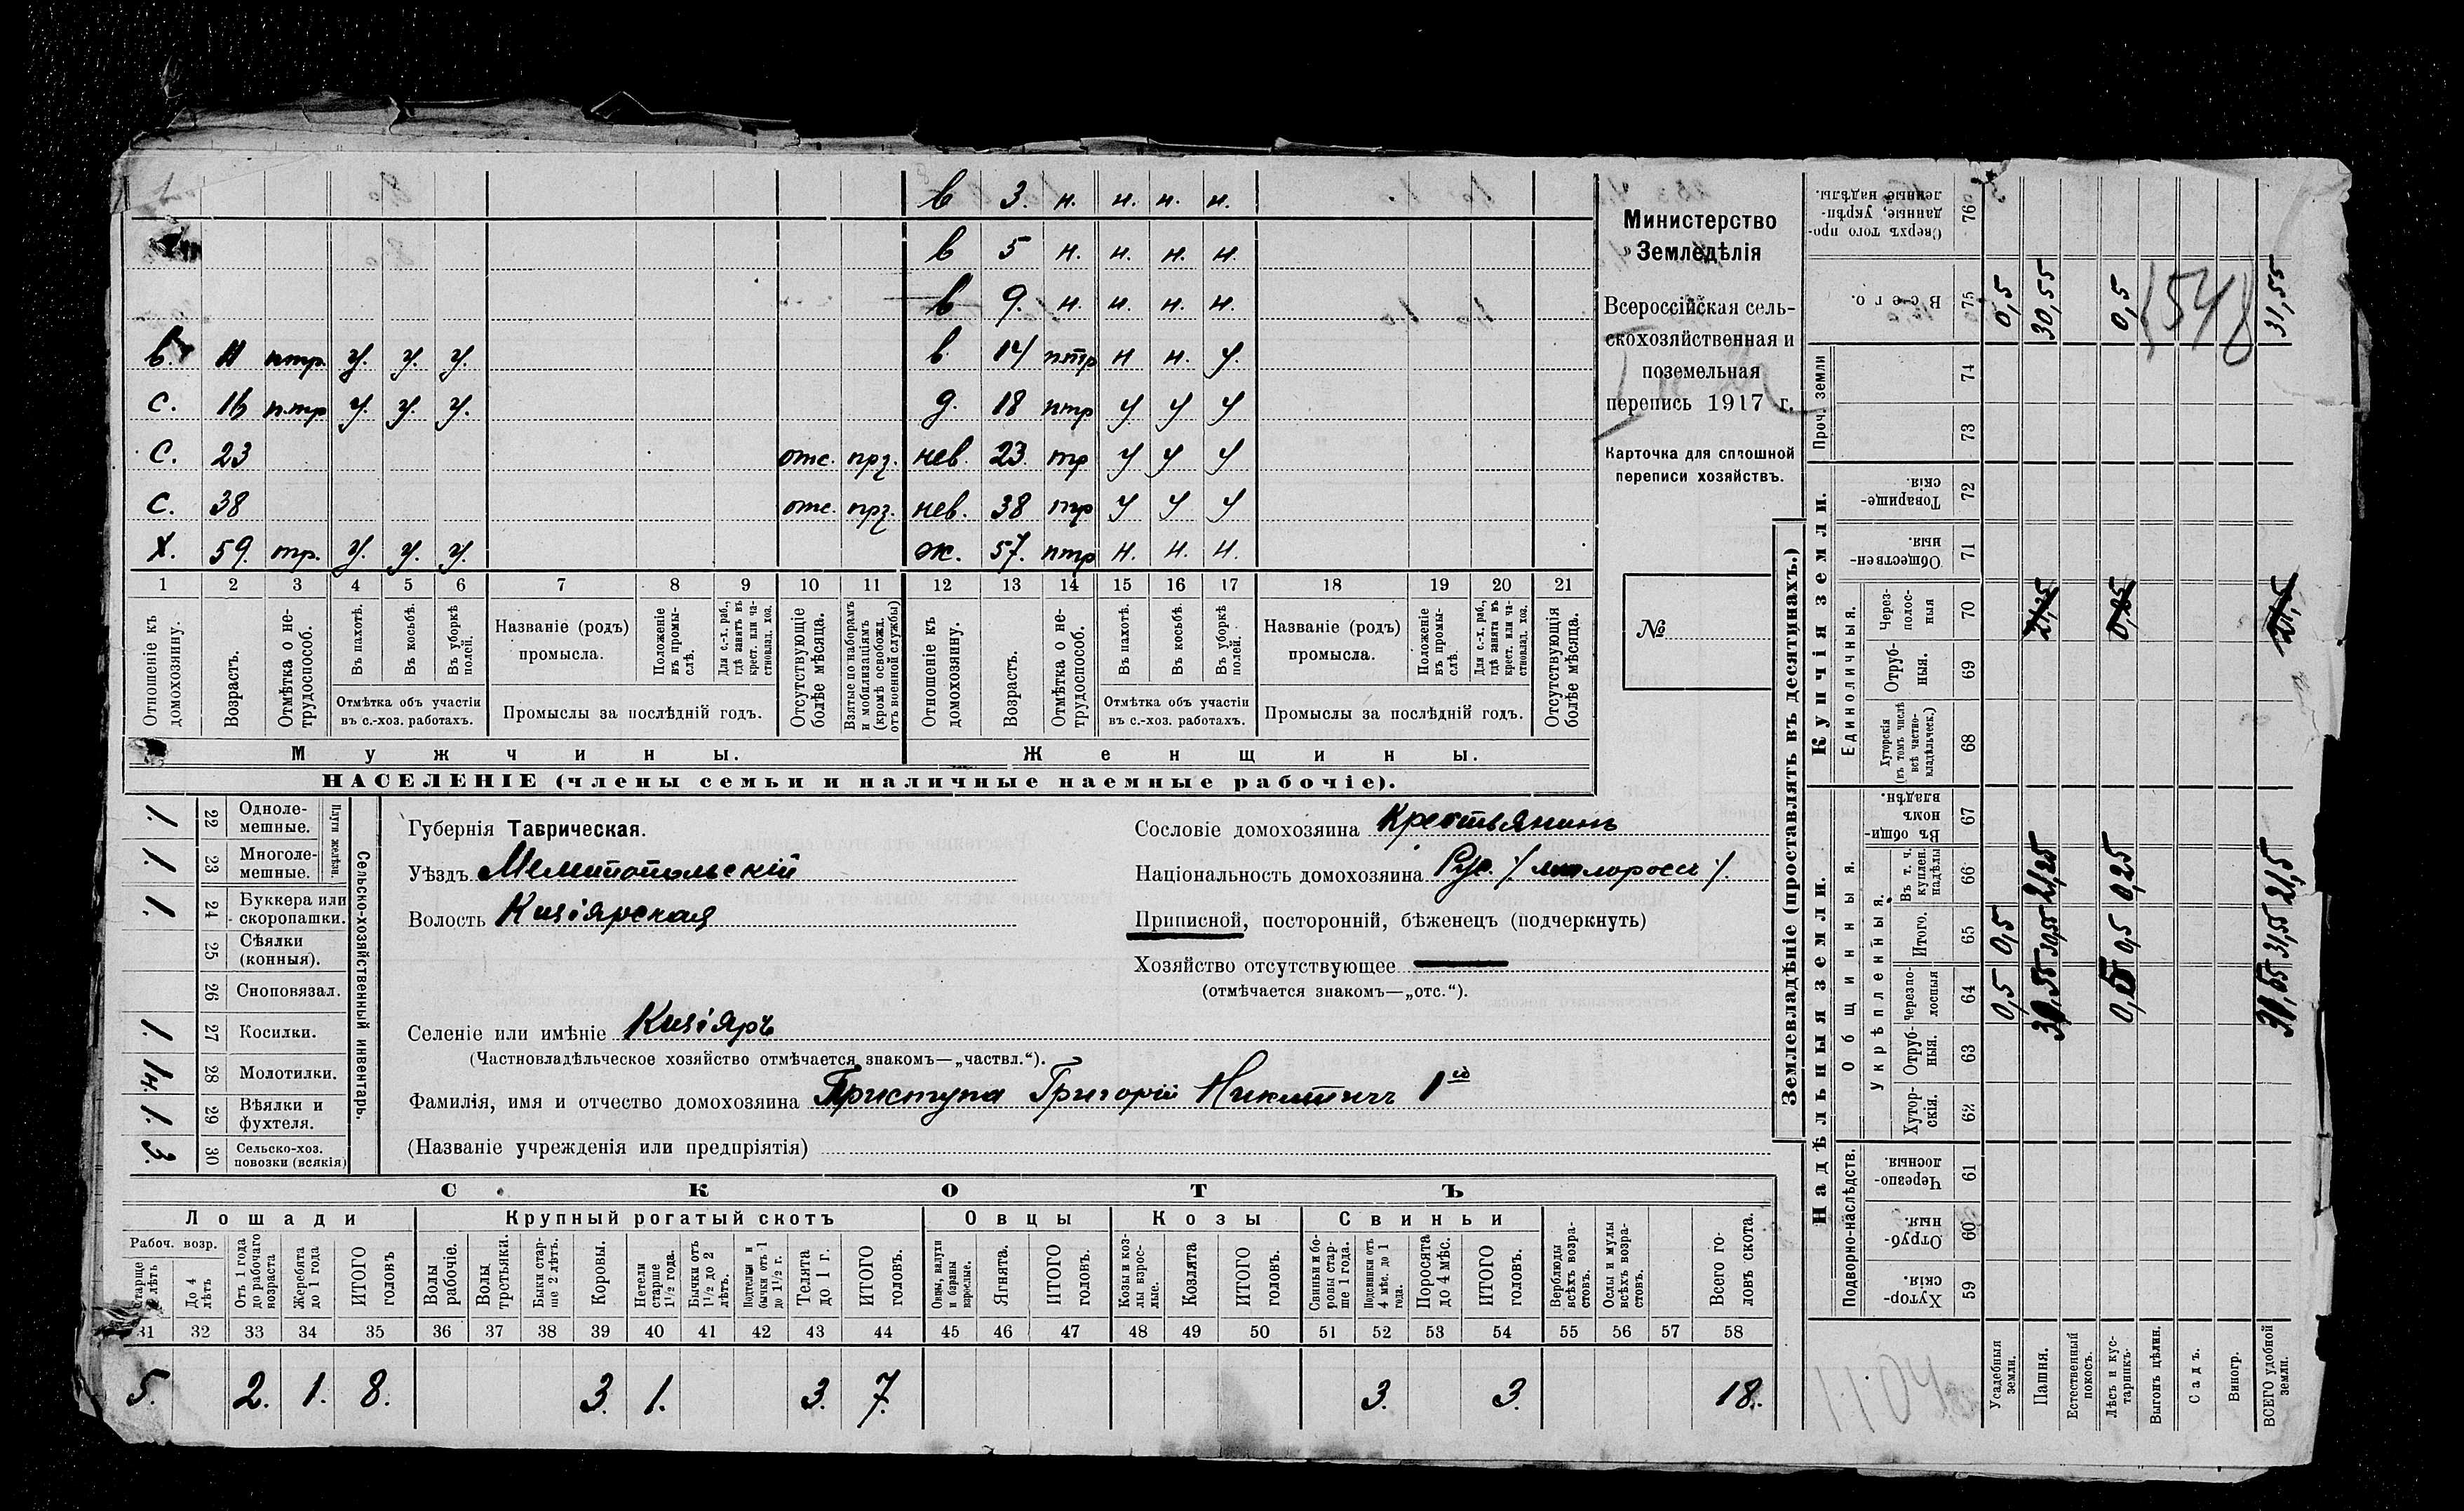 в 3. н. н. н. н.
в 5 н. н. н. н.
в 9. н. н. н. н.
в. 11 птр. у. у. у. в. 14 птр н н. у.
с. 16 птр у. у. у. д. 18 птр у у у
с. 23 отс. прз. нев. 23 тр у у у
с. 38 отс. прз. нев. 38 птр у у у
х. 59. тр. у. у. у. ж. 57. птр н. н. н.
1 2 3 4 5 6 7 8 9 10 11 12 13 14 15 16 17 18 19 20 21
Отношеніе къ домохозяину.
Возрастъ.
Отмѣтка о не-трудоспособ.
Въ пахотѣ.
Въ косьбѣ.
Въ уборкѣ полей.
Отмѣтка объ участіи въ с.-хоз. работахъ.
Названіе (родъ) промысла.
Положеніе въ промы-слѣ.
Для с.-х. раб., гдѣ занятъ въ крест. или ча-стновлад. хоз.
Промыслы за послѣдній годъ.
Отсутствующіе болѣе мѣсяца.
Взятые по наборамъ и мобилизаціямъ (кромѣ освобожд. отъ военной службы)
Отношеніе къ домохозяину.
Возрастъ.
Отмѣтка о не-трудоспособ.
Въ пахотѣ.
Въ косьбѣ.
Въ уборкѣ полей.
Отмѣтка объ участіи въ с.-хоз. работахъ.
Названіе (родъ) промысла.
Положеніе въ промы-слѣ.
Для с.-х. раб., гдѣ занята въ крест. или ча-стновлад. хоз.
Промыслы за послѣдній годъ.
Отсутствующія болѣе мѣсяца.
Мужчины. Женщины.
НАСЕЛЕНІЕ (члены семьи и наличные наемные рабочіе).
Министерство
Земледѣлія
Всероссійская сель-
скохозяйственная и
поземельная
перепись 1917 г.
Карточка для сплошной
переписи хозяйствъ.
№
1. 22 Одноле-мешные.
1. 23 Многоле-мешные.
Плуги желѣзн.
1. 24 Буккера или скоропашки.
25 Сѣялки (конныя).
26 Сноповязал.
1. 27 Косилки.
1н. 28 Молотилки.
1. 29 Вѣялки и фухтеля.
3. 30 Сельско-хоз. повозки (всякія)
Сельско-хозяйственный инвентарь.
Губернія Таврическая.
Уѣздъ Мелитопольскій
Волость Кизіярская
Сословіе домохозяина Крестьянинъ
Національность домохозяина Рус. /малороссъ/.
Приписной, посторонній, бѣженецъ (подчеркнуть)
Хозяйство отсутствующее
(отмѣчается знакомъ—„отс.“).
Селеніе или имѣніе Кизіяръ
(Частновладѣльческое хозяйство отмѣчается знакомъ—„частвл.“).
Фамилія, имя и отчество домохозяина Приступа Григорій Никитичъ 1ый
(Названіе учрежденія или предпріятія)
СКОТЪ
Лошади Крупный рогатый скотъ Овцы Козы Свиньи
Рабоч. возр.
старше 4 лѣтъ
До 4 лѣтъ
Отъ 1 года до рабочаго возраста
Жеребята до 1 года
ИТОГО головъ
Волы рабочіе.
Волы, третьяки.
Быки стар-ше 2 лѣтъ.
Коровы.
Нетели старше 1½ года.
Бычки отъ 1½ до 2 лѣтъ.
Подтелки и бычки отъ 1 до 1½ г.
Телята до 1 г.
ИТОГО головъ.
Овцы, валухи и бараны взрослые.
Ягнята.
ИТОГО головъ.
Козы и коз-лы взрос-лые.
Козлята
ИТОГО головъ.
Свиньи и бо-ровы стар-ше 1 года.
Подсвинки отъ 4 мѣс. до 1 года.
Поросята до 4 мѣс.
ИТОГО головъ.
Верблюды всѣхъ возра-стовъ.
Ослы и мулы всѣхъ возра-стовъ.
Всего го-ловъ скота.
31 32 33 34 35 36 37 38 39 40 41 42 43 44 45 46 47 48 49 50 51 52 53 54 55 56 57 58
5. 2. 1. 8. 3. 1. 3. 7. 3. 3. 18.
Землевладѣніе (проставлять въ десятинахъ.)
Надѣльныя земли. Купчія земли. Проч. земли
Подворно-наслѣдств.
Общинныя.
Укрѣпленныя.
Единоличныя.
Хутор-скія. 59
Отруб-ныя. 60
Черезпо-лосныя. 61
Хутор-скія. 62
Отруб-ныя. 63
Черезпо-лосныя 64
Итого. 65
Въ т. ч. куплен. надѣлы 66
Въ общин-номъ владѣн. 67
Хуторскія (въ томъ числѣ всѣ частно-владѣльческ.) 68
Отруб-ныя. 69
Через-полос-ныя 70
Обществен-ныя. 71
Товарище-скія. 72
73
74
Всего. 75
Сверхъ того про-данные, укрѣп-ленные надѣлы. 76
Усадебныя земли. 0,5 0,5 0,5
Пашня. 30,55 30,55 21,25 21,25 30,55
Естественный покосъ.
Лѣсъ и кус-тарникъ. 0,5 0,5 0,25 0,25 0,5
Выгонъ цѣлин.
Садъ.
Виногр.
ВСЕГО удобной земли. 31,55 31,55 21,5 21,5 31,55
548